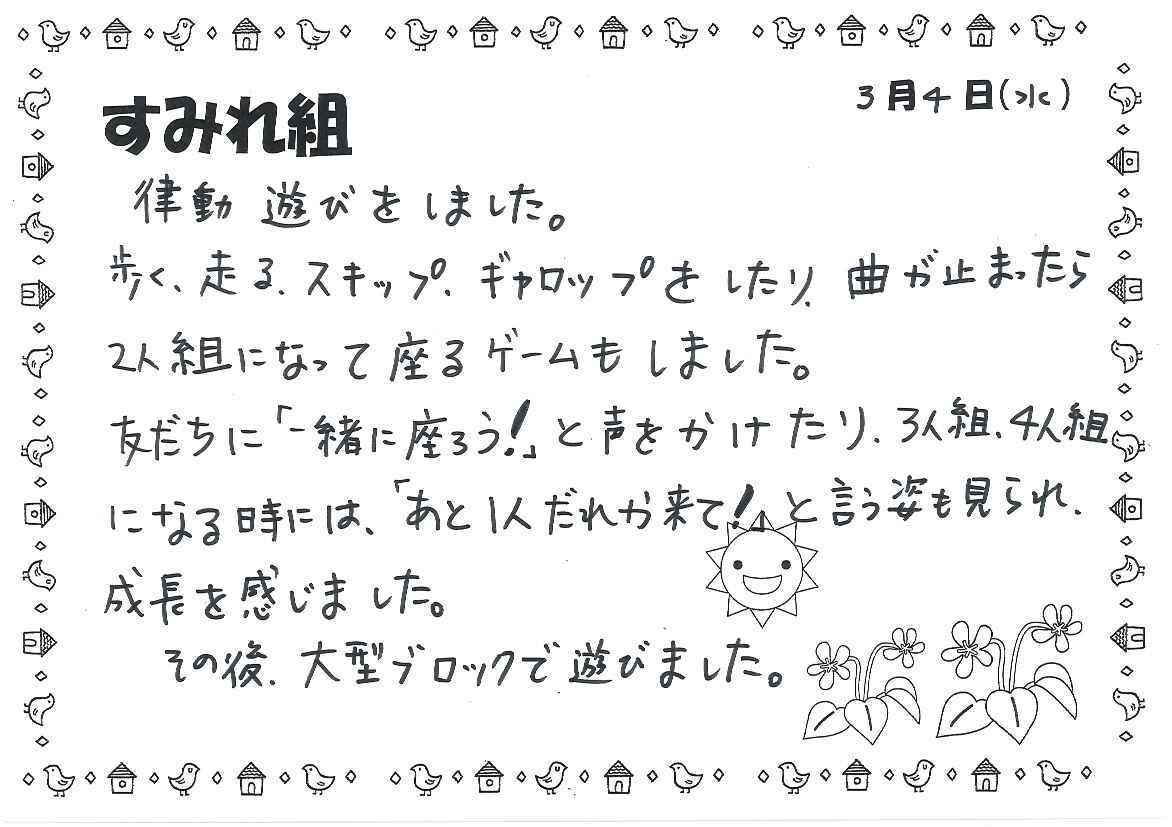 すみれ組
3月4日(水)
律動遊びをしました。
歩く、走る、スキップ、ギャロップをしたり、曲が止まったら
2人組になって座るゲームもしました。
友だちに「一緒に座ろう!」と声をかけたり、3人組、4人組
になる時には、「あと1人だれか来て!」と言う姿も見られ、
成長を感じました。
その後、大型ブロックで遊びました。